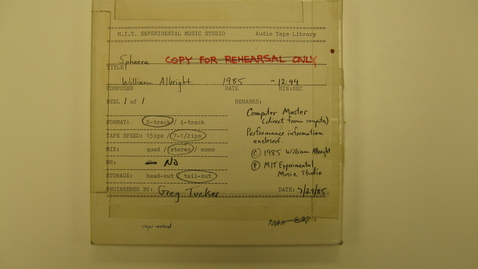 M.I.T. EXPERIMENTAL MUSIC STUDIO Audio Tape Library
Sphaera COPY FOR REHEARSAL ONLY
TITLE
William Albright 1985 ~12:44
COMPOSER DATE MIN:SEC
REEL 1 of 1 REMARKS:
Computer Master
(direct from computer)
FORMAT: 2-track 4-track
TAPE SPEED: 15ips 7-1/2ips Performance information
enclosed.
MIX: quad / stereo / mono © 1985 William Albright
NR: NO ℗ MIT Experimental
Music Studio
STORAGE: head-out tail-out
ENGINEERED BY: Greg Tucker DATE: